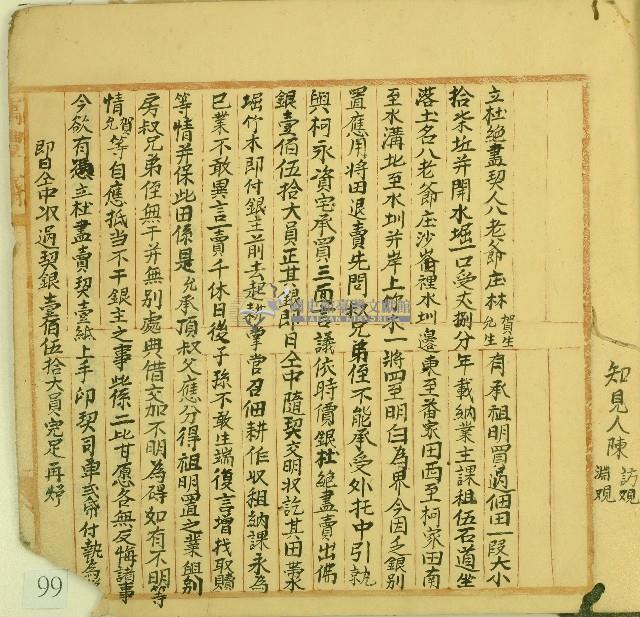 立杜絕盡契人八老爺庄林賀生允生有承祖明買過佃田一段大小
拾柒坵并開水堀一口受丈捌分年載納業主課租伍石道坐
落土名八老爺庄沙崙裡水圳邊東至蕃家田西至柯家田南
至水溝北至水圳并岸上車水一將四至明白為界今因乏銀別
置應用將田退賣先問叔兄弟侄不能承受外托中引就
與柯永資宅承買三面言議依時價銀杜絕盡賣出佛
銀壹佰伍拾大員正其銀即日仝中隨契交明收訖其田帶水
堀竹木即付銀主前去起耕掌管召佃耕作收租納課永為
己業不敢異言一賣千休日後子孫不敢生端復言增找取贖
等情并保此田係是允承頂叔父應分得祖明置之業與別
房叔兄弟侄無干并無別處典借交加不明為碍如有不明等
情允賀等自應抵当不干銀主之事此係二比甘愿各無反悔諸事
今欲有憑立杜盡賣契壹紙上手印契司單弍帋付執為
即日仝中收過契銀壹佰伍拾大員完足再炤
知見人陳訪观淵观
99